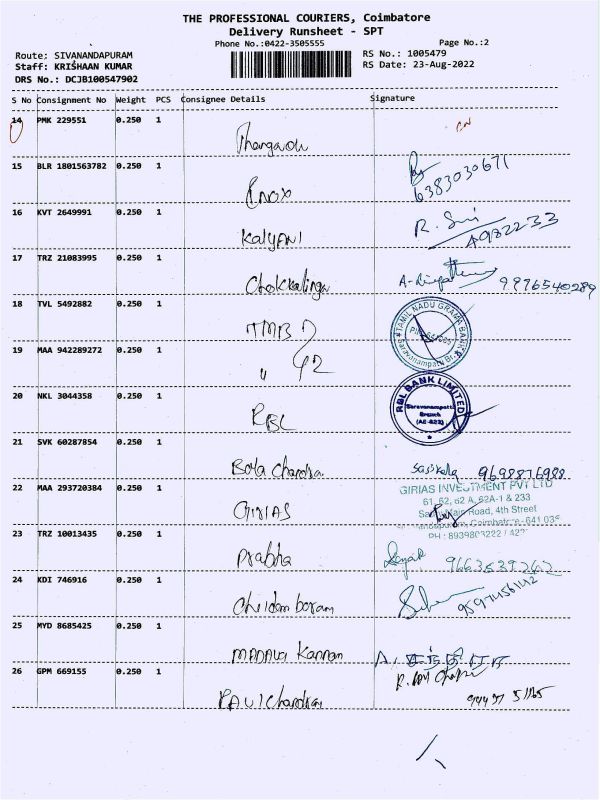 THE PROFESSIONAL COURIERS, Coimbatore
Delivery Runsheet - SPT
Phone No.:0422-3505555 Page No.:2
Route: SIVANANDAPURAM RS No.: 1005479
Staff: KRISHAAN KUMAR RS Date: 23-Aug-2022
DRS No.: DCJB100547902
S No Consignment No Weight PCS Consignee Details Signature
14 PMK 229551 0.250 1
15 BLR 1801563782 0.250 1 Knox 6383030671
16 KVT 2649991 0.250 1 KALYANI R. 4982233
17 TRZ 21083995 0.250 1 Chokkalinga 9976540289
18 TVL 5492882 0.250 1 TMB TAMIL NADU GRAMA BANK Saravanampatti Br.
19 MAA 942289272 0.250 1 "
20 NKL 3044358 0.250 1 RBL RBL BANK LIMITED Saravanampatti Branch
21 SVK 60287854 0.250 1 Bala Chandra Sasikala 9698876988
22 MAA 293720384 0.250 1 GIRIAS GIRIAS INVESTMENT PVT LTD
61, 62, 62 A, 62A-1 & 233
Road, 4th Street
Coimbatore-641 035
23 TRZ 10013435 0.250 1 Prabha 9663539262
24 KDI 746916 0.250 1 Chidamboram
25 MYD 8685425 0.250 1 MADAVA Kannan
26 GPM 669155 0.250 1 RAVI Chandran